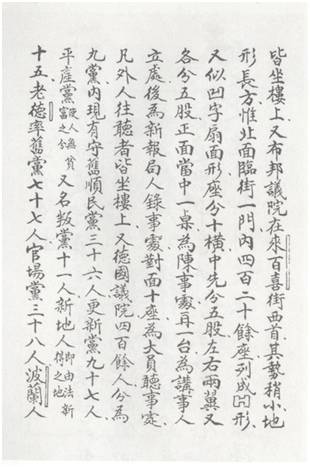 皆坐樓上又布邦議院在來百喜街西首其勢稍小地
形長方惟北面臨街一門內四百二十餘座列成凹形
又似凹字扇面形座分十橫中先分五股左右兩翼又
各分五股正面當中一桌為陳事處再一台為講事人
立處後為新報局人錄事處對面十座為大員聽事處
凡外人往聽者皆坐樓上又德國議院四百餘人分為
九黨內現有守舊順民黨三十六人更新黨九十七人
平產黨欲人無貧富之分又名叛黨十一人新地人即由法新得之地
十五老德率舊黨七十七人官場黨三十八人波蘭人